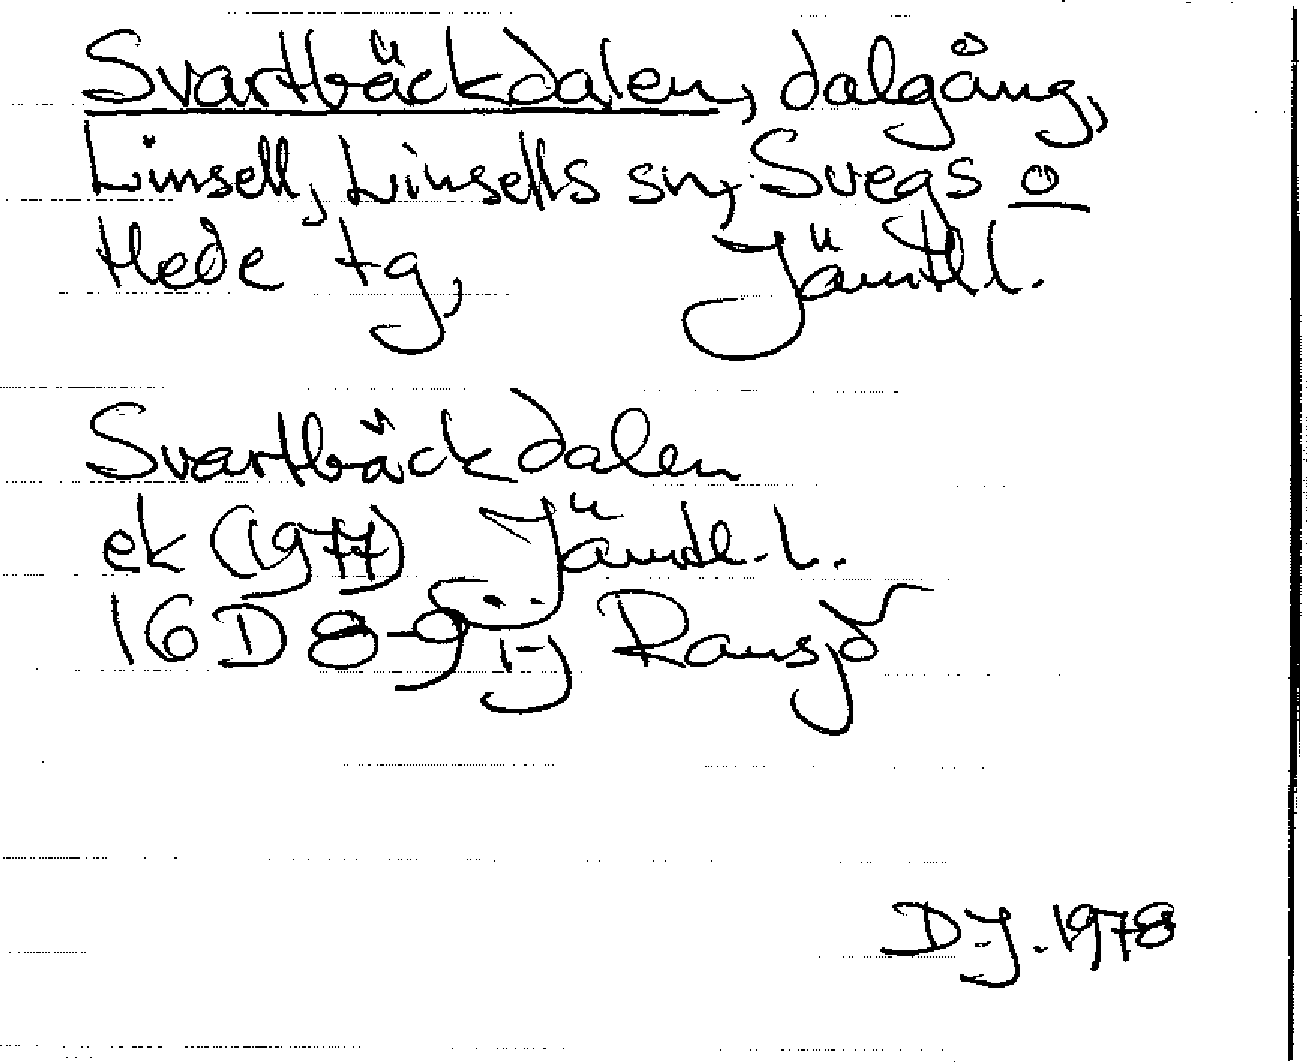 Svartbäckdalen, dalgång,
Linsell, Linsells sn, Svegs o
Hede tg, Jämtl.
Svartbäckdalen
ek (1977) Jämtl. l.
16 D 8-9 i-j Ransjö
D-J. 1978